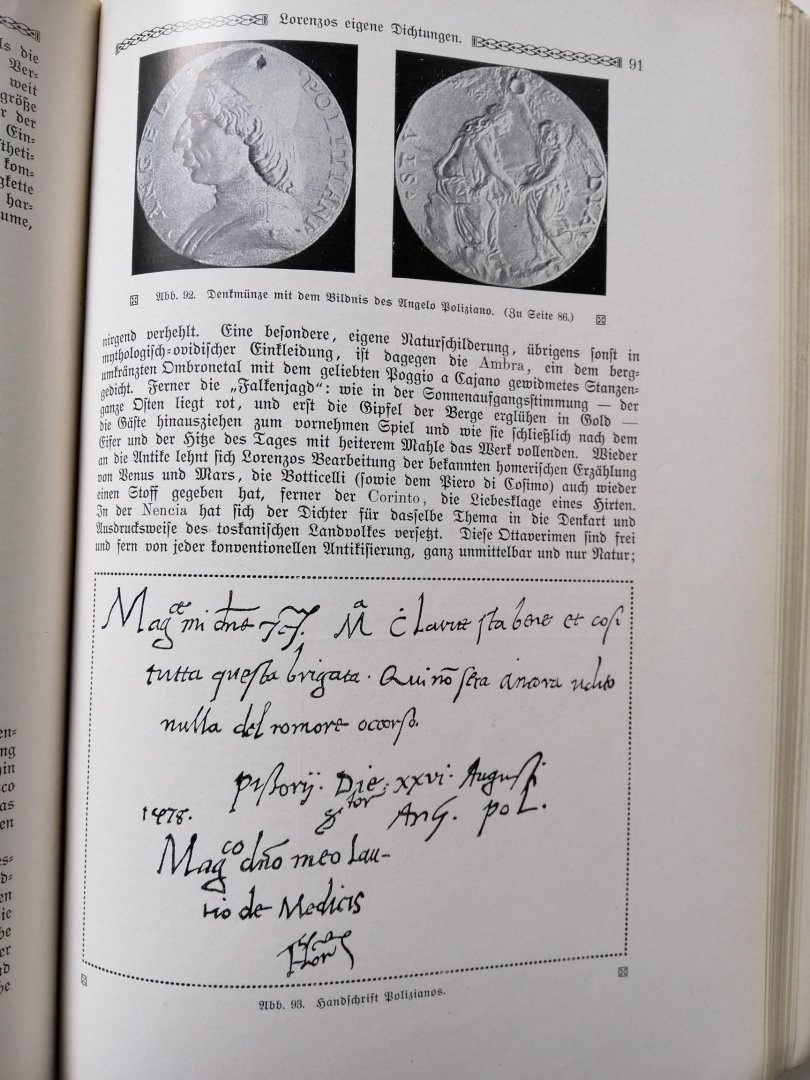 ls die
Ver=
weit
größe
r der
Ein=
theti=
kom=
gkette
har=
ume,
en=
ng
hin
co
as
en
es=
d=
en
ie
he
er
d
he
Lorenzos eigene Dichtungen.
91
ANGELI POLITIANI
STV DIA
Abb. 92. Denkmünze mit dem Bildnis des Angelo Poliziano. (Zu Seite 86.)
nirgend verhehlt. Eine besondere, eigene Naturschilderung, übrigens sonst in
mythologisch-ovidischer Einkleidung, ist dagegen die Ambra, ein dem berg=
umkränzten Ombronetal mit dem geliebten Poggio a Cajano gewidmetes Stanzen=
gedicht. Ferner die „Falkenjagd“: wie in der Sonnenaufgangsstimmung — der
ganze Osten liegt rot, und erst die Gipfel der Berge erglühen in Gold —
die Gäste hinausziehen zum vornehmen Spiel und wie sie schließlich nach dem
Eifer und der Hitze des Tages mit heiterem Mahle das Werk vollenden. Wieder
an die Antike lehnt sich Lorenzos Bearbeitung der bekannten homerischen Erzählung
von Venus und Mars, die Botticelli (sowie dem Piero di Cosimo) auch wieder
einen Stoff gegeben hat, ferner der Corinto, die Liebesklage eines Hirten.
In der Nencia hat sich der Dichter für dasselbe Thema in die Denkart und
Ausdrucksweise des toskanischen Landvolkes versetzt. Diese Ottaverimen sind frei
und fern von jeder konventionellen Antikisierung, ganz unmittelbar und nur Natur;
Mag ce mi dne Mа Clarice sta bene et cosi
tutta questa brigata. Qui nõ sera ancora udito
nulla del romore occorso.
Pistorij. Die. xxvi. Augusti
1478. Ang. Pol.
Magco dño meo Lau-
rio de Medicis
Abb. 93. Handschrift Polizianos.